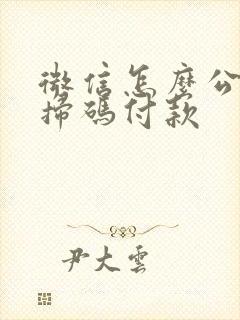 微信怎麼公
掃碼付款
尹大雲